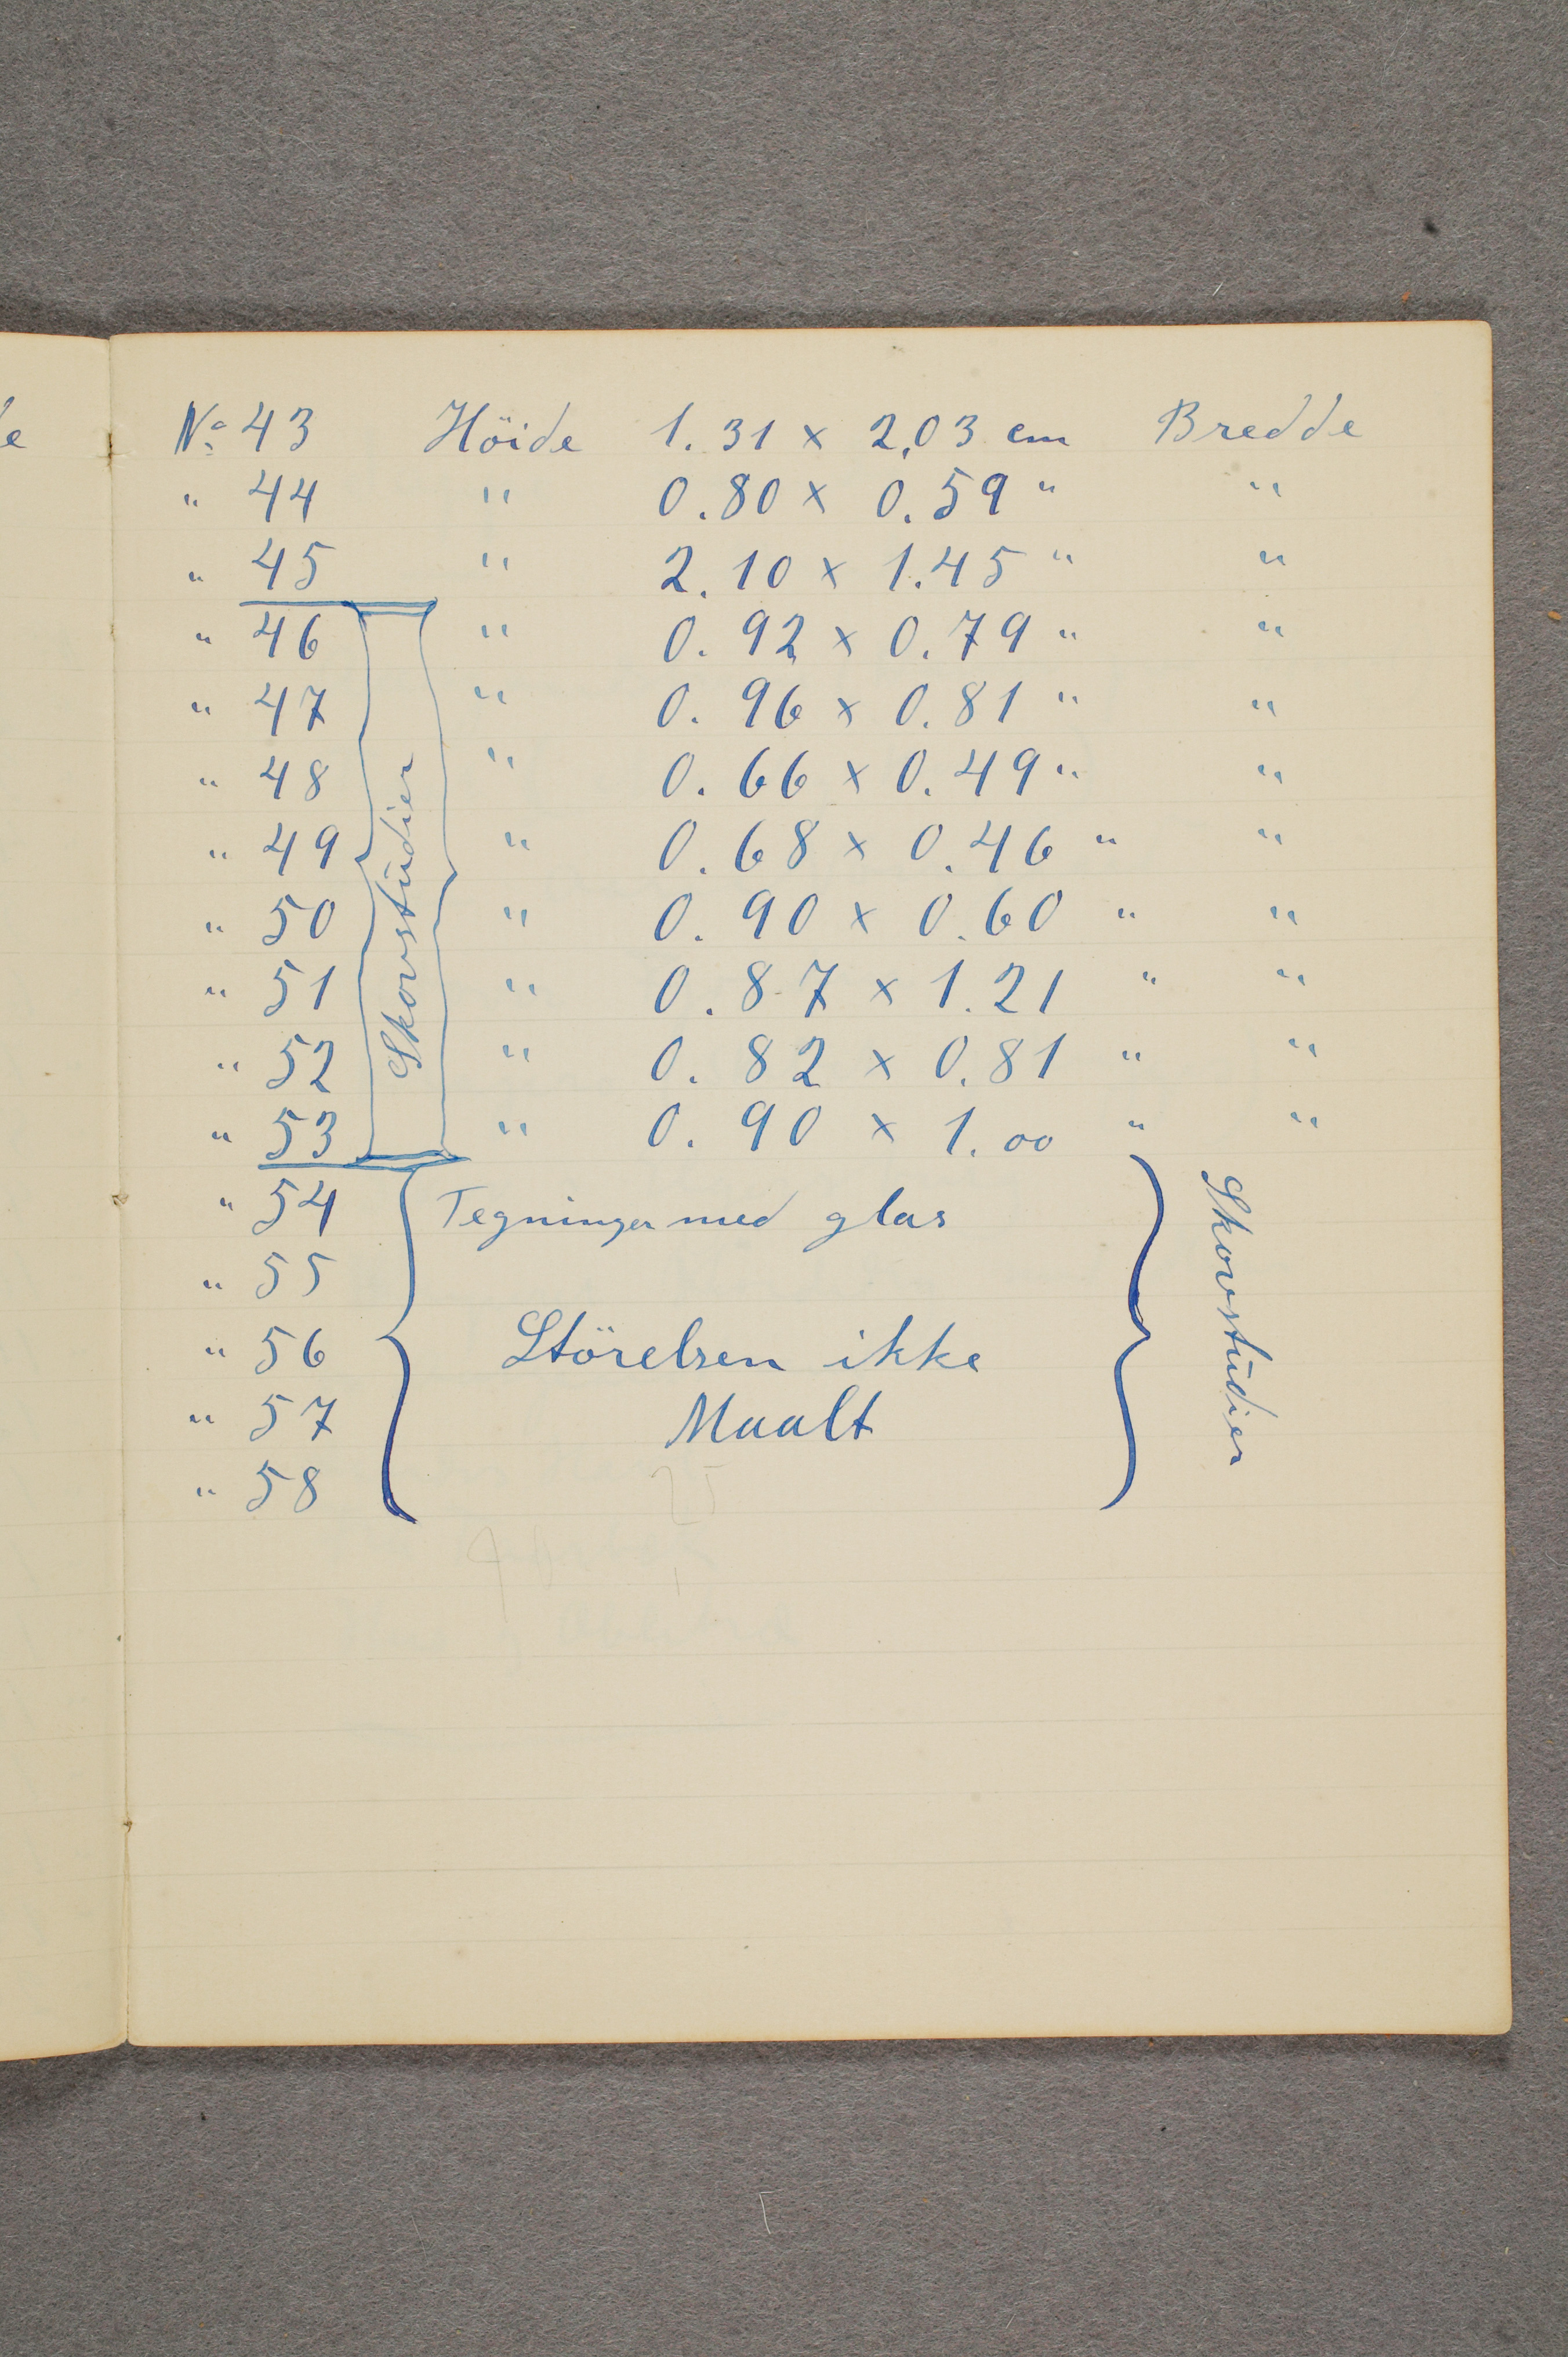 No 43 Höide 1.31 x 2,03 cm Bredde
" 44 " 0.80 x 0.59 " "
" 45 " 2.10 x 1.45 " "
" 46 " 0.92 x 0.79 " "
" 47 " 0.96 x 0.81 " "
" 48 " 0.66 x 0.49 " "
" 49 " 0.68 x 0.46 " "
" 50 " 0.90 x 0.60 " "
" 51 " 0.87 x 1.21 " "
" 52 " 0.82 x 0.81 " "
" 53 " 0.90 x 1.00 " "
Skovstudier
" 54 Tegninger med glas
" 55
" 56 Störelsen ikke
" 57 Maalt
" 58
Skovstudier